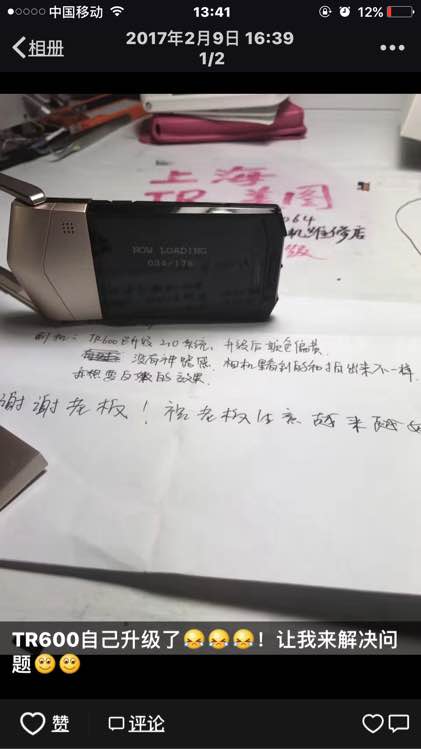 中国移动
13:41
12%
相册
2017年2月9日 16:39
1/2
上海
TR 美图
064
机维修店
级
NOW LOADING
034/178
TR600已升级210系统，升级后颜色偏黄
没有神秘感，相机里看到的和拍出来不一样
我想要白嫩的效果
谢谢老板！祝老板生意越来越
TR600自己升级了😝😝😝！让我来解决问
题🙂🙂
赞
评论